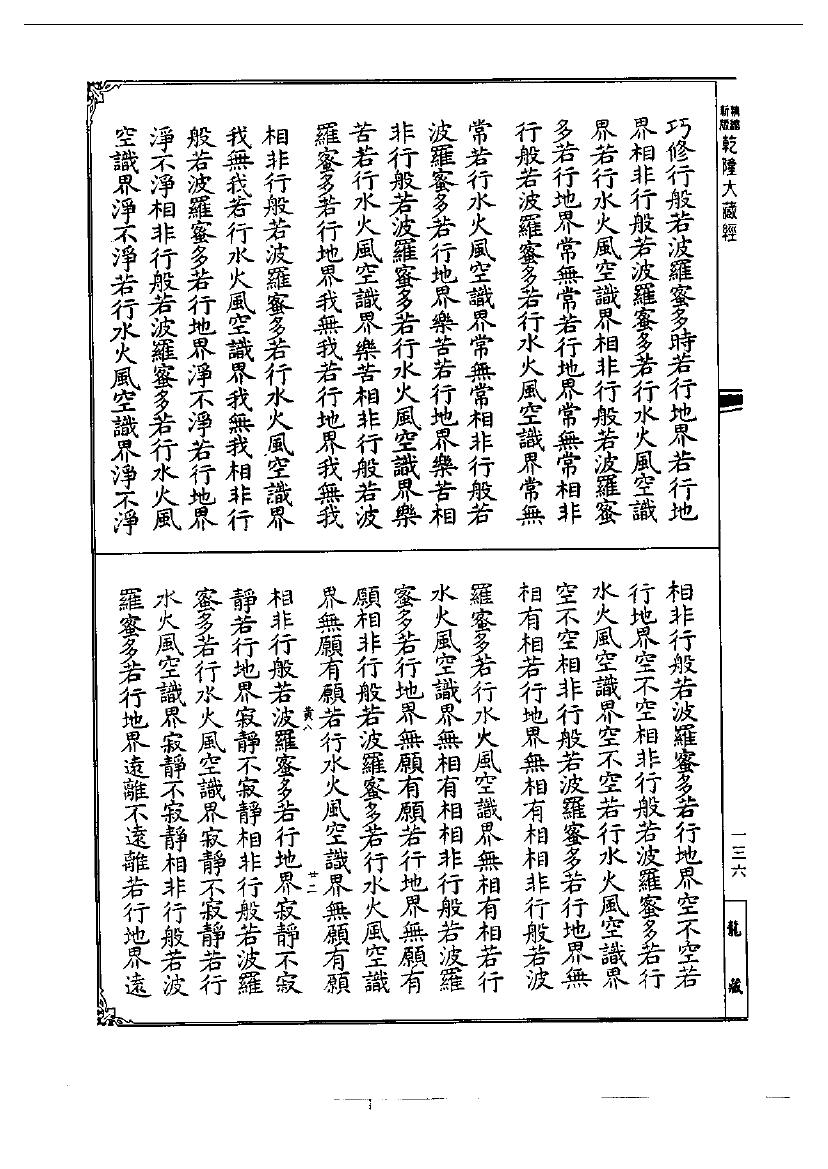 精編新版
乾隆大藏經
巧修行般若波羅蜜多時若行地界若行地
界相非行般若波羅蜜多若行水火風空識
界若行水火風空識界相非行般若波羅蜜
多若行地界常無常若行地界常無常相非
行般若波羅蜜多若行水火風空識界常無
常若行水火風空識界常無常相非行般若
波羅蜜多若行地界樂苦若行地界樂苦相
非行般若波羅蜜多若行水火風空識界樂
苦若行水火風空識界樂苦相非行般若波
羅蜜多若行地界我無我若行地界我無我
相非行般若波羅蜜多若行水火風空識界
我無我若行水火風空識界我無我相非行
般若波羅蜜多若行地界淨不淨若行地界
淨不淨相非行般若波羅蜜多若行水火風
空識界淨不淨若行水火風空識界淨不淨
相非行般若波羅蜜多若行地界空不空若
行地界空不空相非行般若波羅蜜多若行
水火風空識界空不空若行水火風空識界
空不空相非行般若波羅蜜多若行地界無
相有相若行地界無相有相相非行般若波
羅蜜多若行水火風空識界無相有相若行
水火風空識界無相有相相非行般若波羅
蜜多若行地界無願有願若行地界無願有
願相非行般若波羅蜜多若行水火風空識
界無願有願若行水火風空識界無願有願
黃八 廿二
相非行般若波羅蜜多若行地界寂靜不寂
靜若行地界寂靜不寂靜相非行般若波羅
蜜多若行水火風空識界寂靜不寂靜若行
水火風空識界寂靜不寂靜相非行般若波
羅蜜多若行地界遠離不遠離若行地界遠
一三六
龍藏